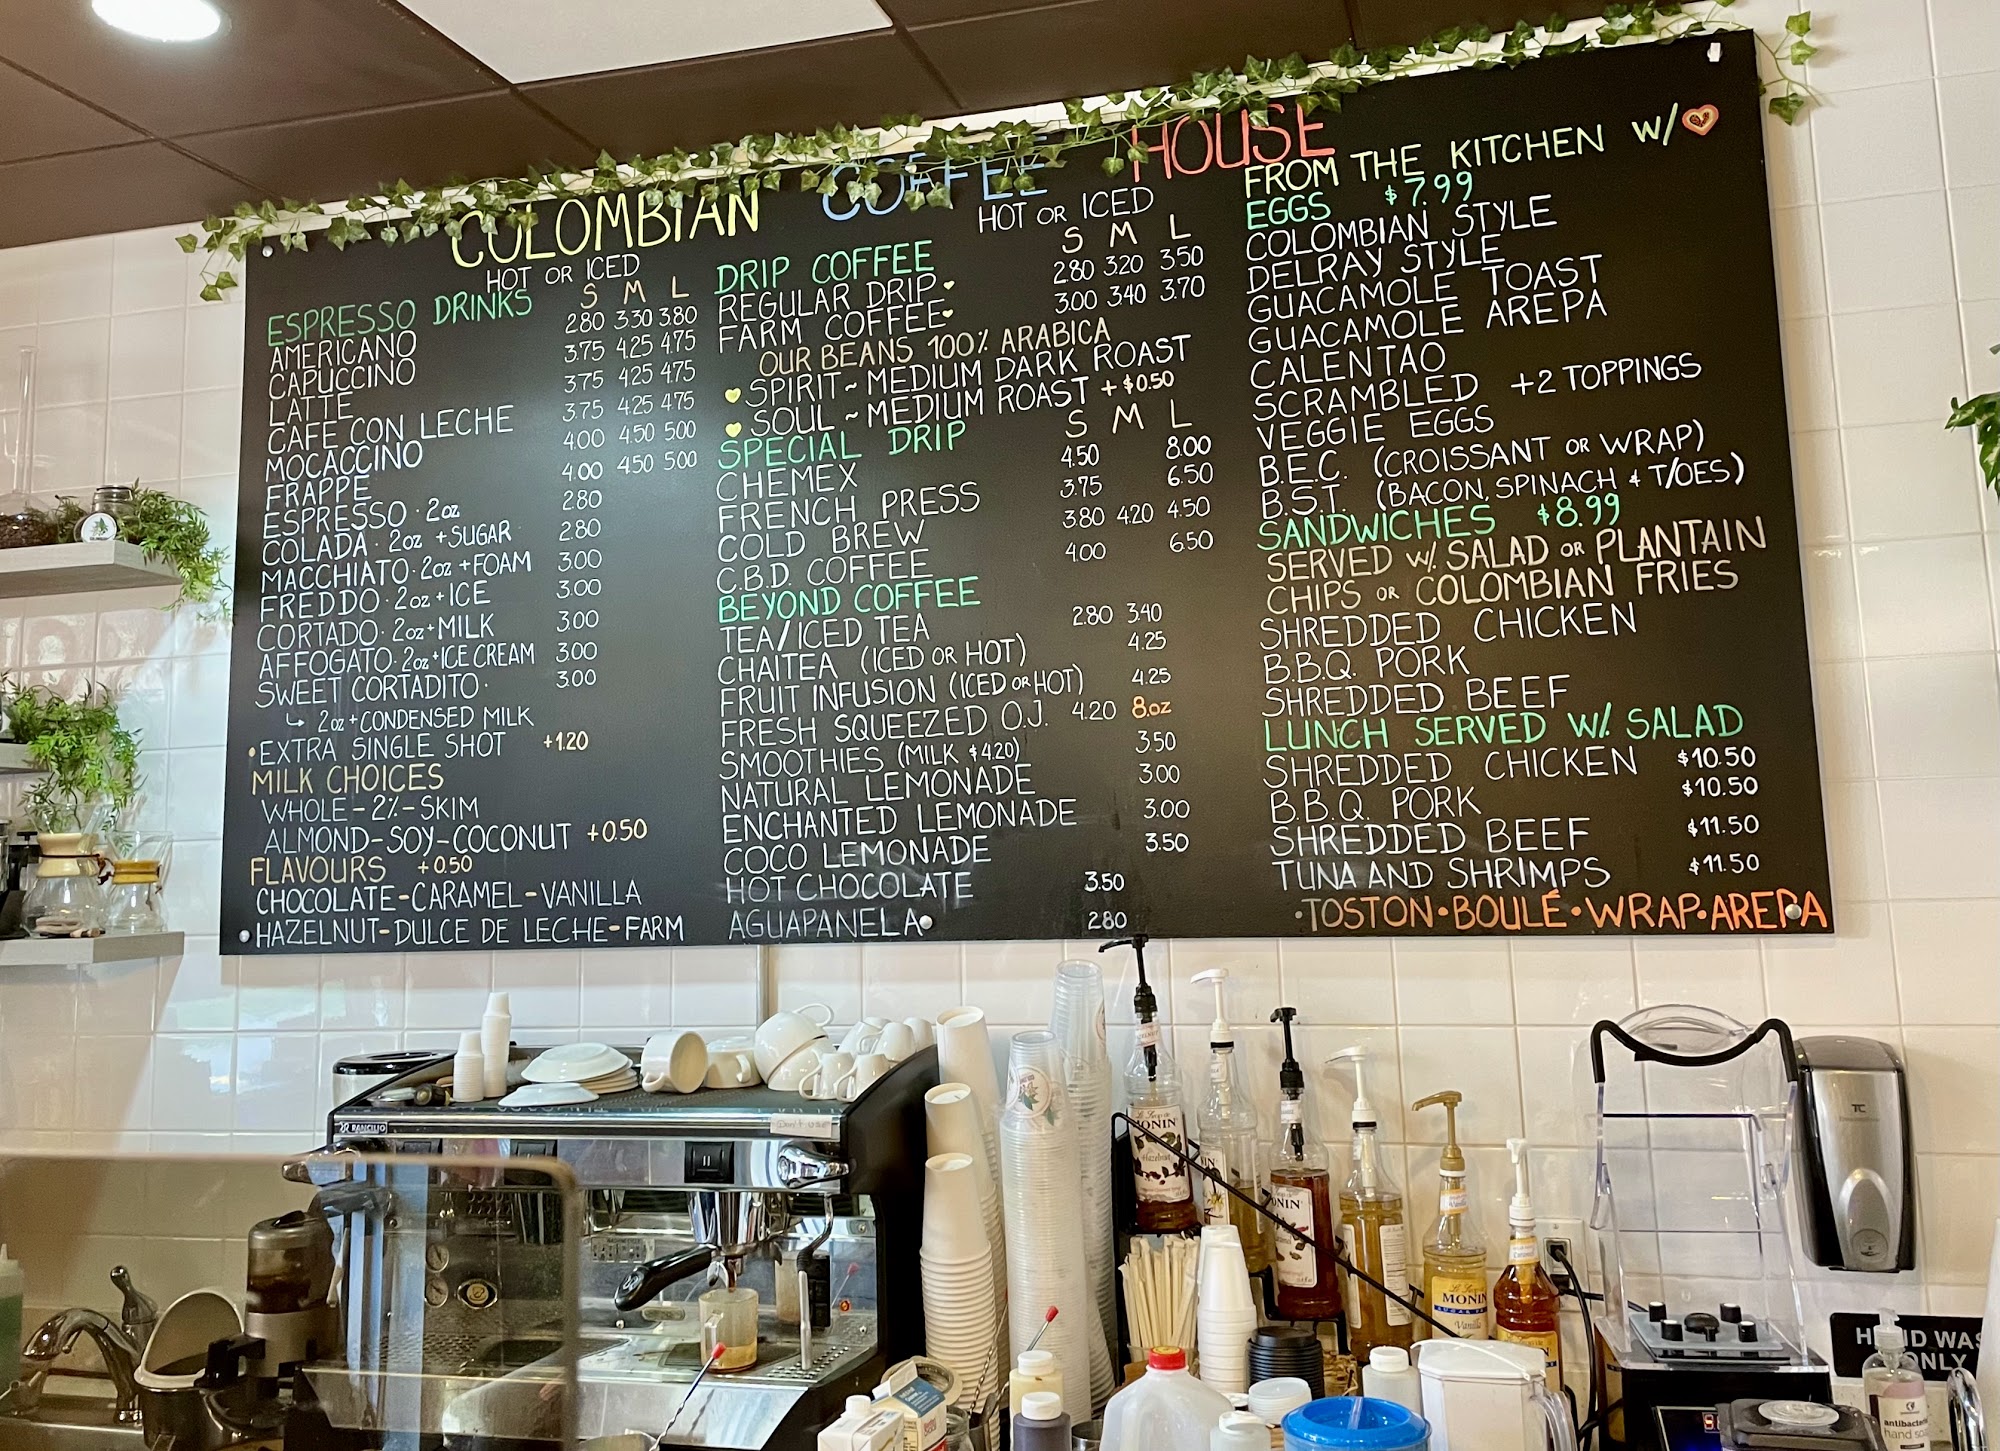 COLOMBIAN COFFEE HOUSE
HOT OR ICED
ESPRESSO DRINKS S M L
AMERICANO 2.80 3.30 3.80
CAPUCCINO 3.75 4.25 4.75
LATTE 3.75 4.25 4.75
CAFE CON LECHE 3.75 4.25 4.75
MOCACCINO 4.00 4.50 5.00
FRAPPE 4.00 4.50 5.00
ESPRESSO · 2oz 2.80
COLADA · 2oz + SUGAR 2.80
MACCHIATO · 2oz + FOAM 3.00
FREDDO · 2oz + ICE 3.00
CORTADO · 2oz + MILK 3.00
AFFOGATO · 2oz + ICE CREAM 3.00
SWEET CORTADITO · 3.00
↳ 2oz + CONDENSED MILK
• EXTRA SINGLE SHOT +1.20
MILK CHOICES
WHOLE - 2% - SKIM
ALMOND - SOY - COCONUT +0.50
FLAVOURS +0.50
CHOCOLATE - CARAMEL - VANILLA
HAZELNUT - DULCE DE LECHE - FARM
HOT OR ICED
DRIP COFFEE S M L
REGULAR DRIP 2.80 3.20 3.50
FARM COFFEE 3.00 3.40 3.70
OUR BEANS 100% ARABICA
SPIRIT ~ MEDIUM DARK ROAST
SOUL ~ MEDIUM ROAST + $0.50
SPECIAL DRIP S M L
CHEMEX 4.50 8.00
FRENCH PRESS 3.75 6.50
COLD BREW 3.80 4.20 4.50
C.B.D. COFFEE 4.00 6.50
BEYOND COFFEE
TEA/ICED TEA 2.80 3.40
CHAITEA (ICED OR HOT) 4.25
FRUIT INFUSION (ICED OR HOT) 4.25
FRESH SQUEEZED O.J. 4.20 8oz
SMOOTHIES (MILK $4.20) 3.50
NATURAL LEMONADE 3.00
ENCHANTED LEMONADE 3.00
COCO LEMONADE 3.50
HOT CHOCOLATE 3.50
AGUAPANELA 2.80
FROM THE KITCHEN W/
EGGS $7.99
COLOMBIAN STYLE
DELRAY STYLE
GUACAMOLE TOAST
GUACAMOLE AREPA
CALENTAO
SCRAMBLED +2 TOPPINGS
VEGGIE EGGS
B.E.C. (CROISSANT OR WRAP)
B.S.T. (BACON, SPINACH & T/OES)
SANDWICHES $8.99
SERVED W/. SALAD OR PLANTAIN
CHIPS OR COLOMBIAN FRIES
SHREDDED CHICKEN
B.B.Q. PORK
SHREDDED BEEF
LUNCH SERVED W/. SALAD
SHREDDED CHICKEN $10.50
B.B.Q. PORK $10.50
SHREDDED BEEF $11.50
TUNA AND SHRIMPS $11.50
• TOSTON • BOULÉ • WRAP • AREPA
RANCILIO
MONIN
Hazelnut
MONIN
MONIN
Vanilla
TC
HAND WAS
ONLY
hand